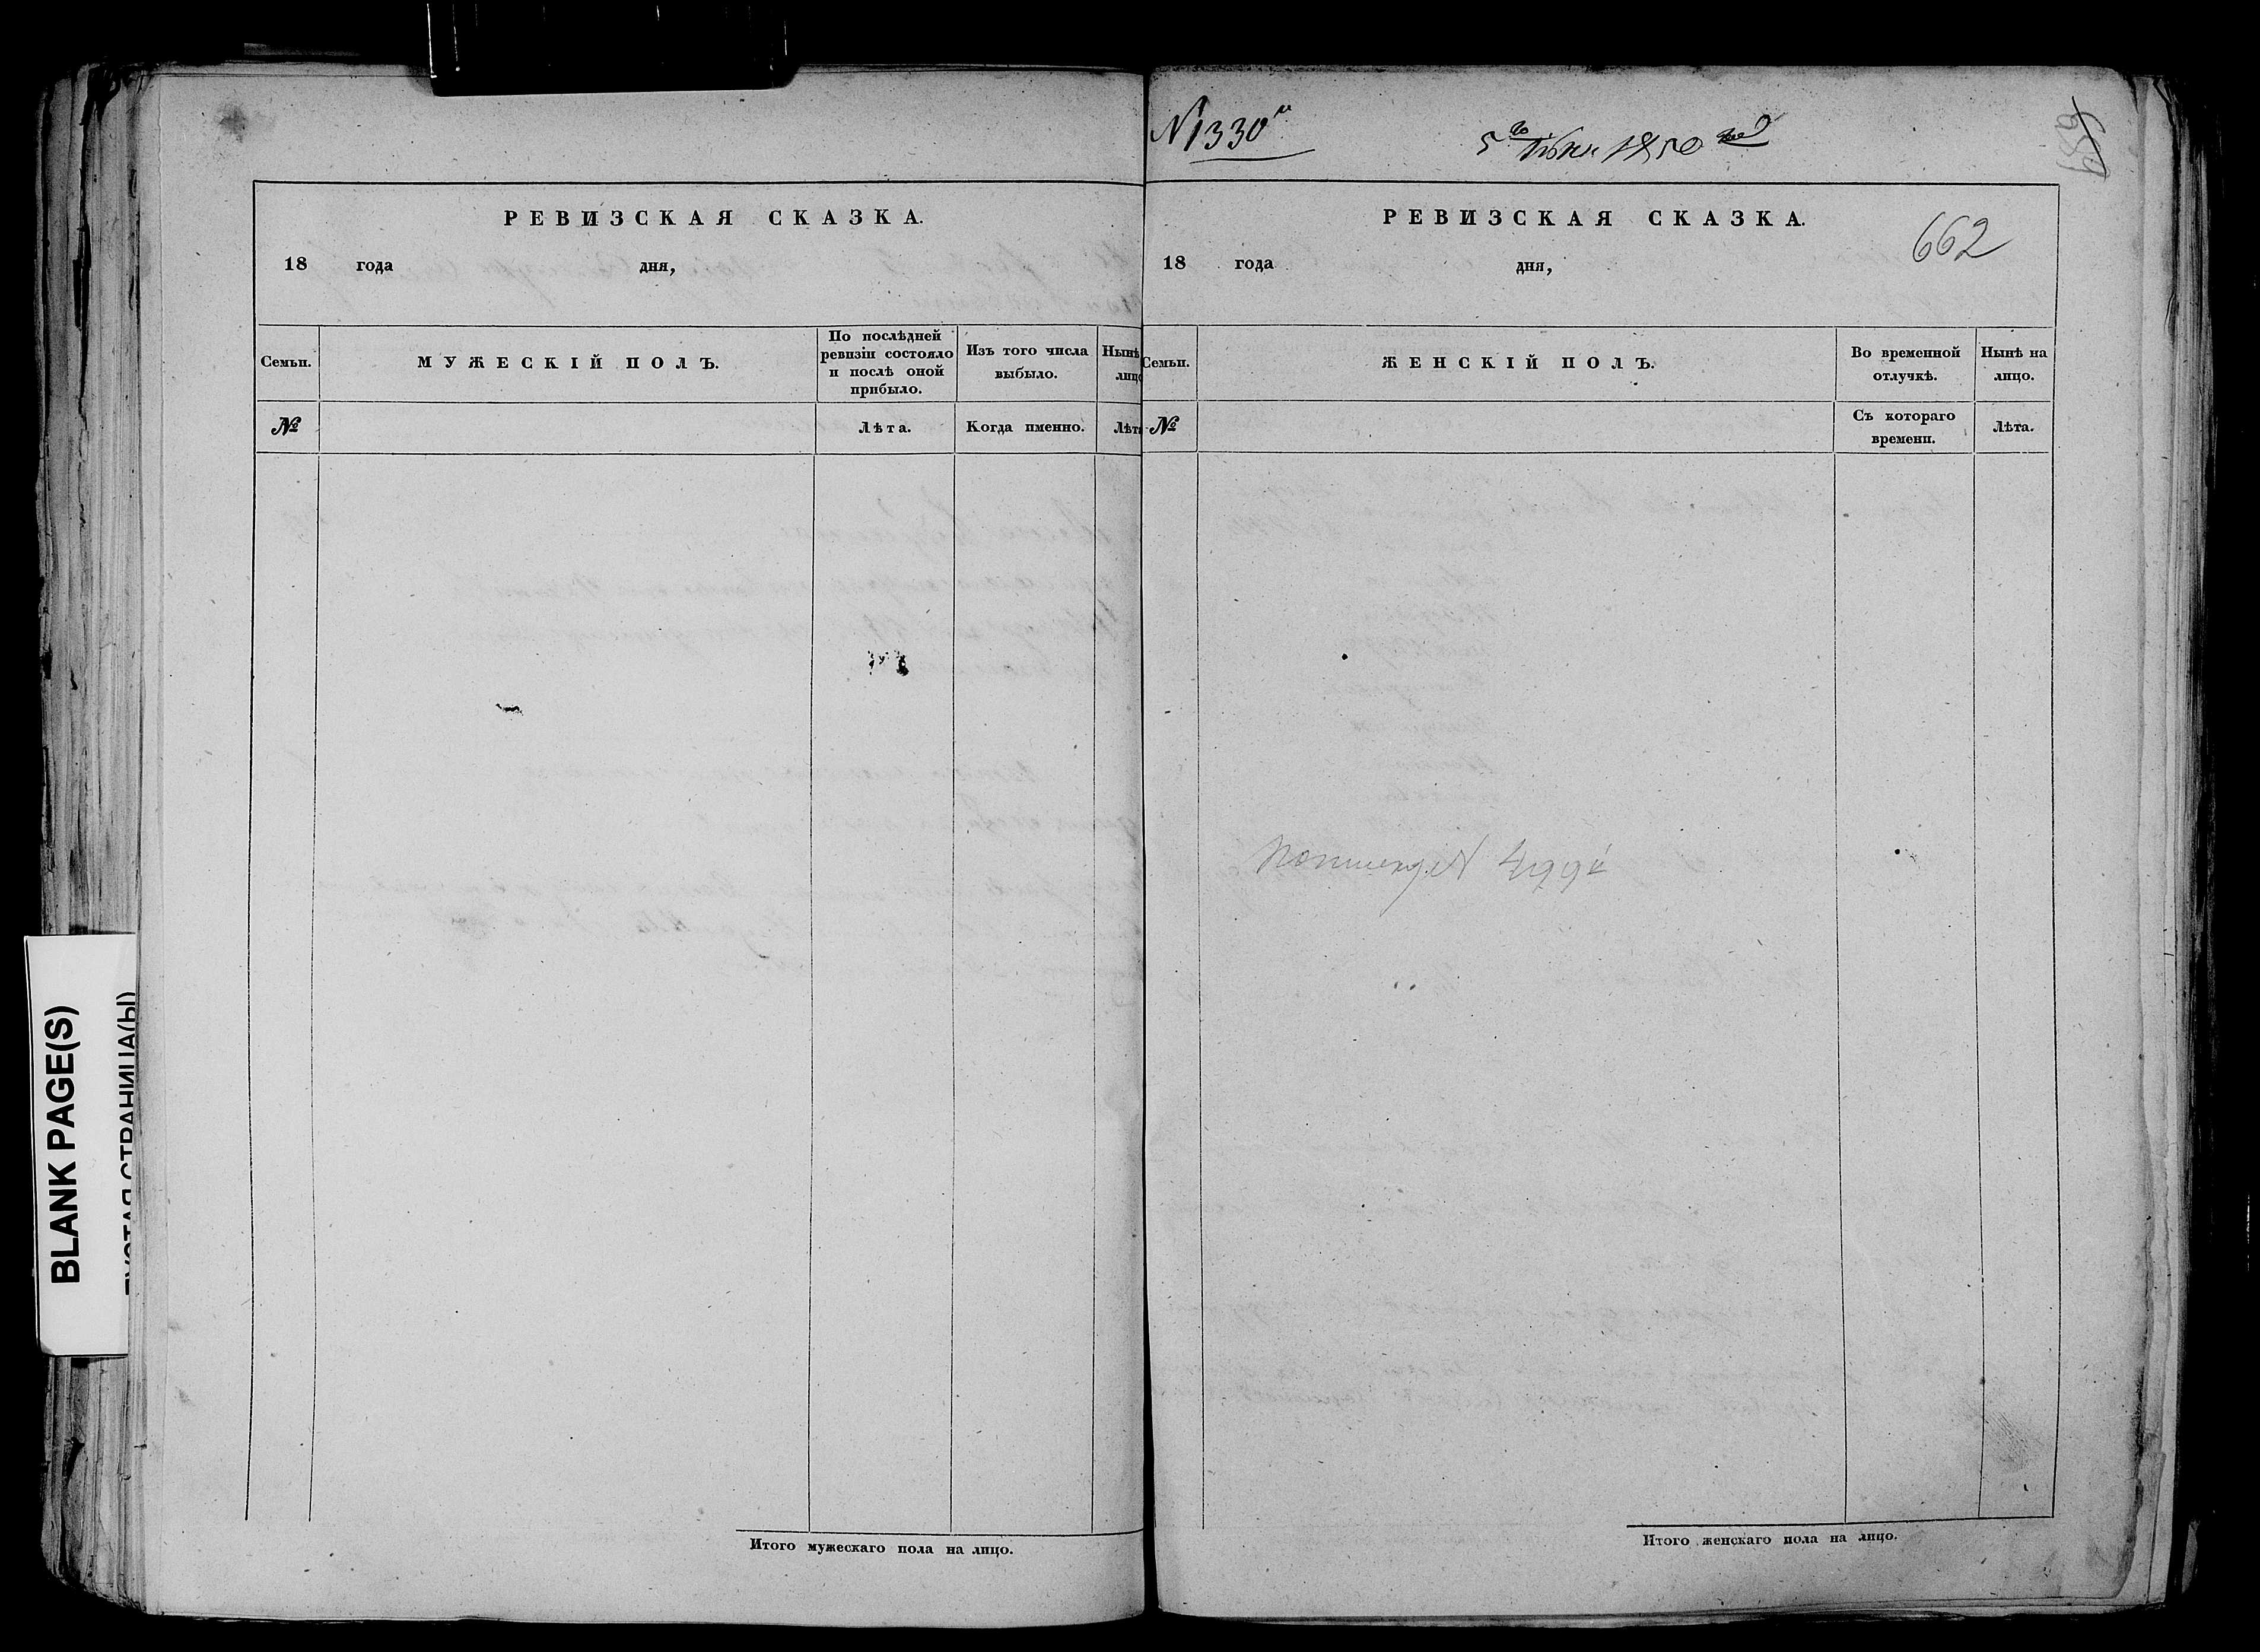 BLANK PAGE(S)
РЕВИЗСКАЯ СКАЗКА.
18 года дня,
Семьи.
МУЖЕСКІЙ ПОЛЪ.
По послѣдней
ревизіи состояло
и послѣ оной
прибыло.
Изъ того числа
выбыло.
Нынѣ
лицо
№
Лѣта.
Когда именно.
Лѣта
Итого мужескаго пола на лицо.
№ 1330й
5го 1850
659
662
РЕВИЗСКАЯ СКАЗКА.
18 года дня,
Семьи.
ЖЕНСКІЙ ПОЛЪ.
Во временной
отлучкѣ.
Нынѣ на
лицо.
№
Съ котораго
времени.
Лѣта.
Итого женскаго пола на лицо.